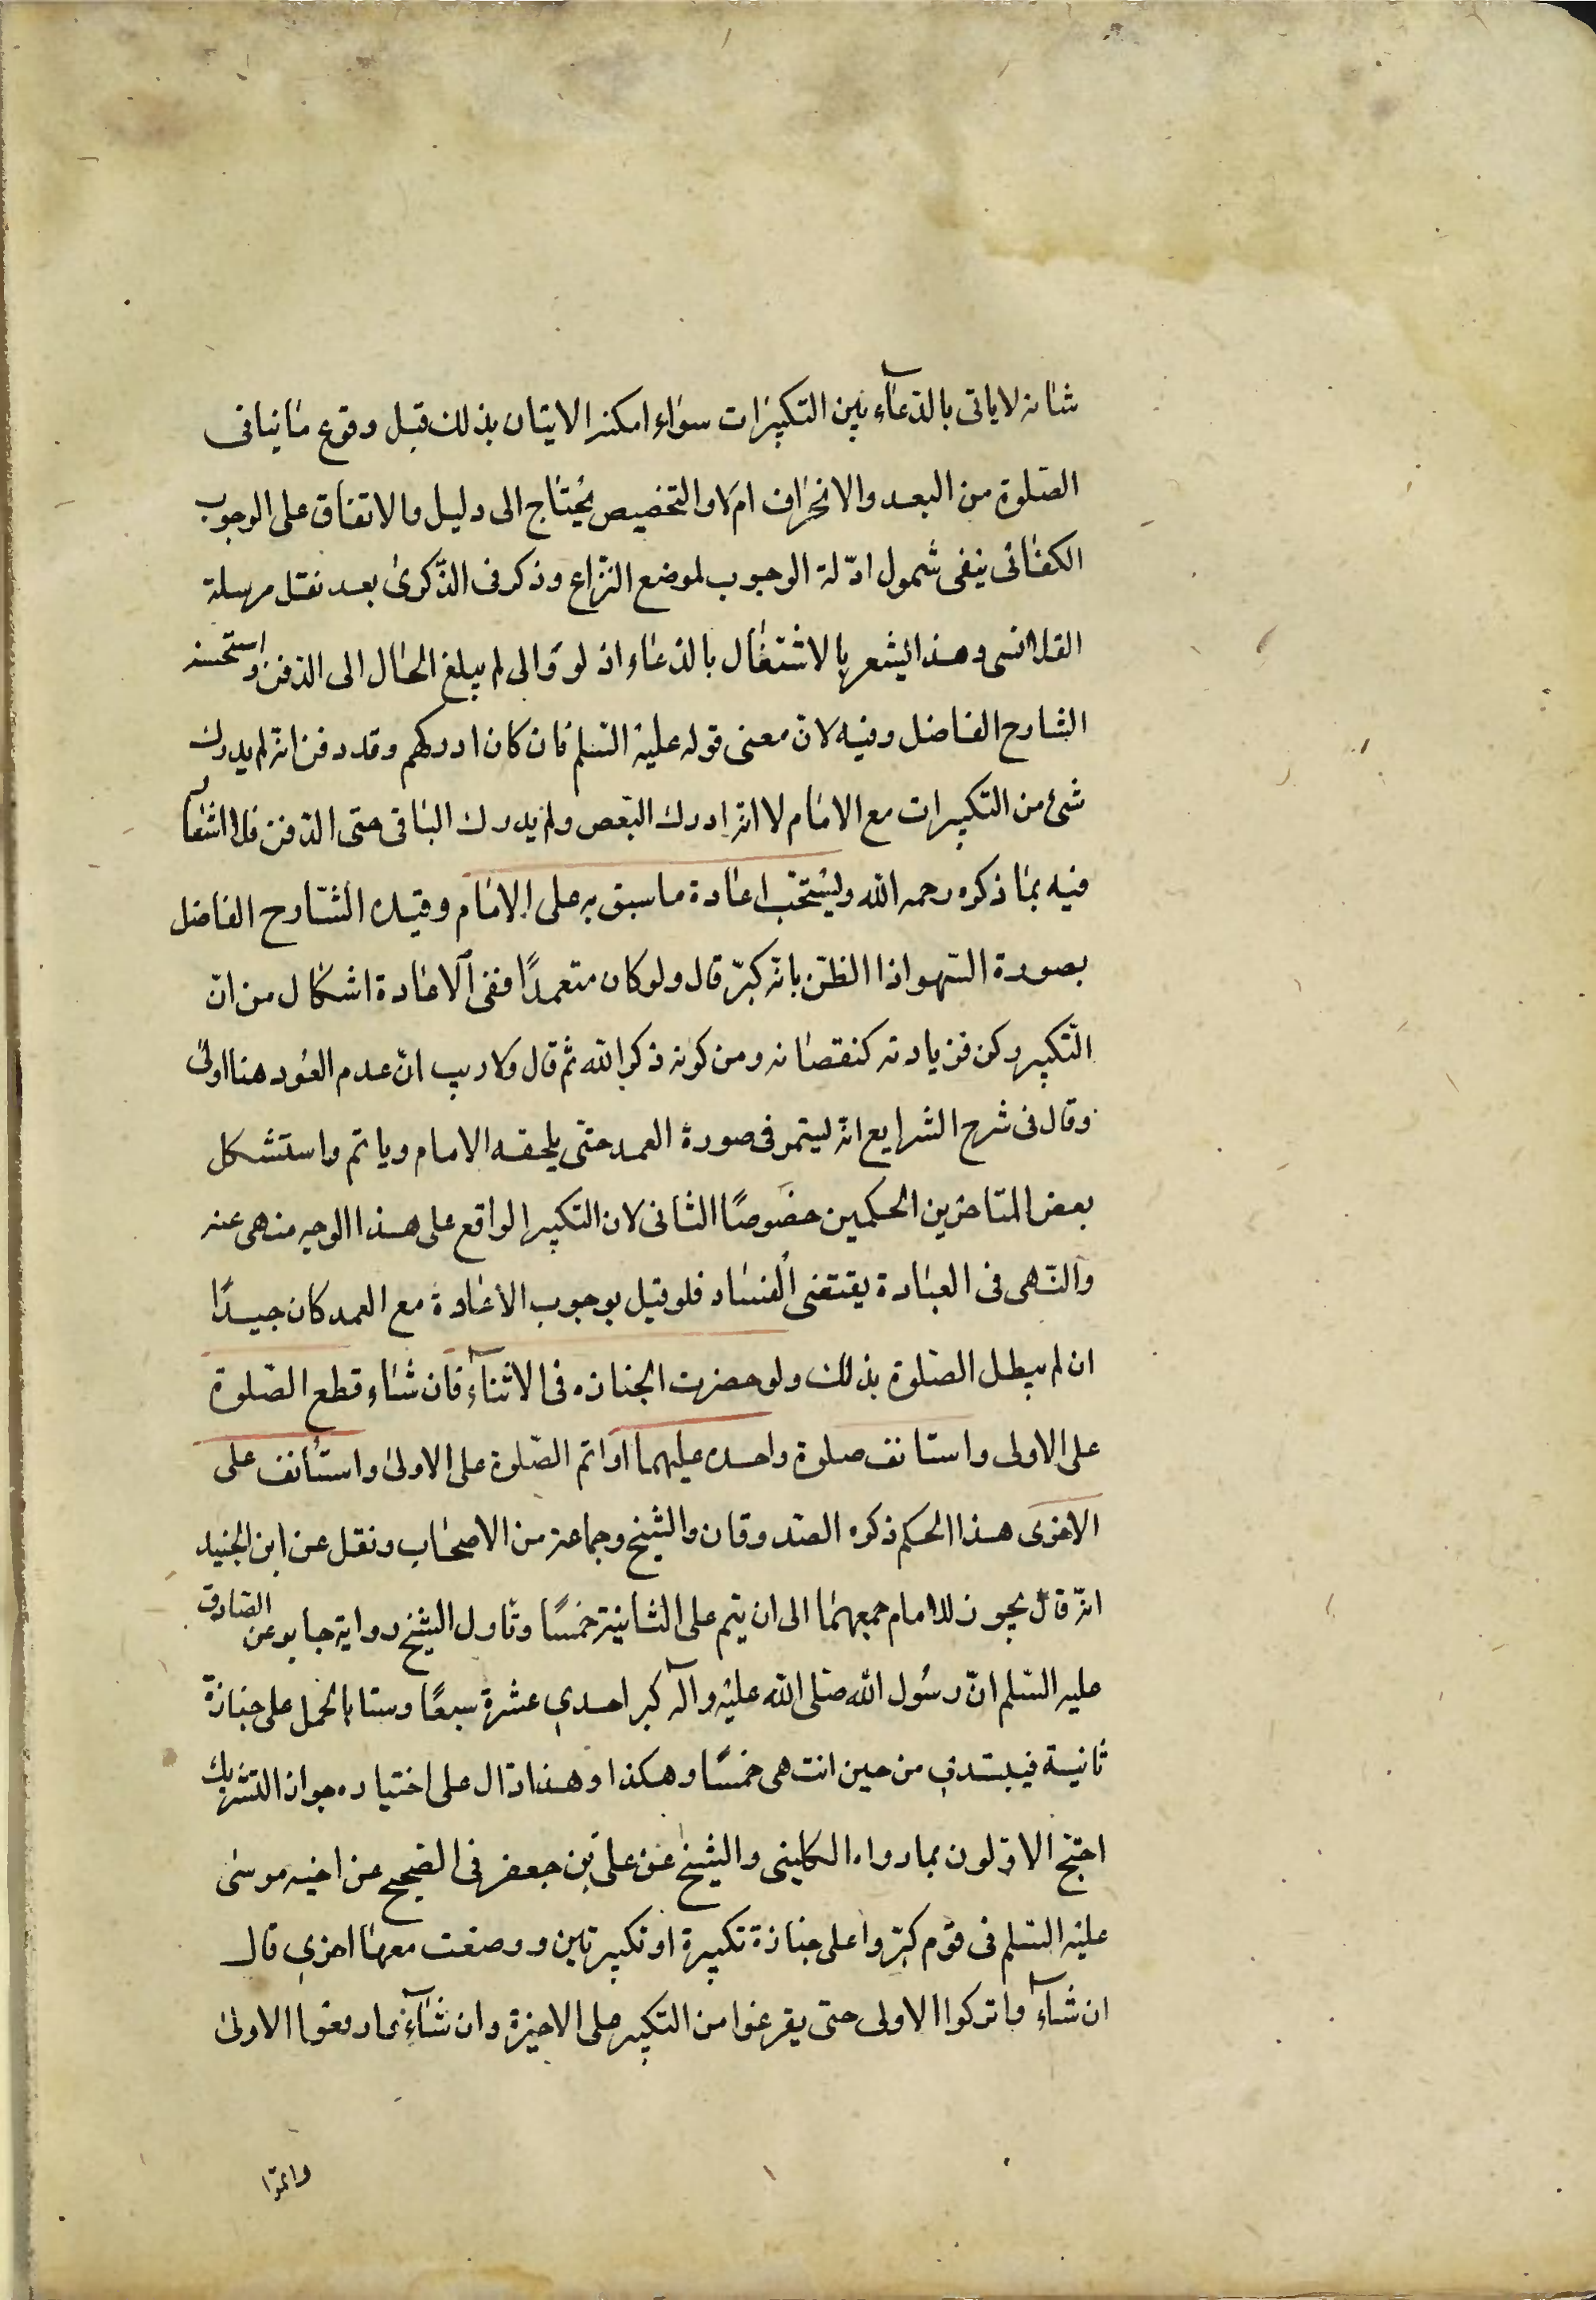 شانه لا ياتى بالدعآء بين التكبيرات سواء امكنه الاتيان بذلك قبل وقوع ما ينافى
الصلوة من البعد والانحراف ام لا والتخصيص يحتاج الى دليل والاتفاق على الوجوب
الكفائى ينفى شمول ادلّة الوجوب لموضع النزاع وذكر فى الذّكرى بعد نقل مرسلة
القلانسى وهذا يشعر بالاشتغال بالدعاء اذ لو والى لم يبلغ الحال الى الدفن واستحسنه
الشارح الفاضل وفيه لان معنى قوله عليه السّلم فان كان ادركهم وقد دفن انه لم يدرك
شئ من التكبيرات مع الامام لا انه ادرك البعض ولم يدرك الباقى حتى الدفن فلا اشعا
فيه بما ذكره رحمه الله ويستحب اعادة ما سبق به على الامام وقيده الشّارح الفاضل
بصورة السّهو اذا الظن بانه كبّر قال ولو كان متعمدًا ففى الاعادة اشكال من انّ
التّكبير ركن فزيادته كنقصانه ومن كونه ذكر الله ثم قال ولا ريب انّ عدم العود هنا اولى
وقال فى شرح الشرايع انه ليتمر فى صورة العمد حتى يلحقه الامام وياتم واستشكل
بعض المتاخرين الحكمين خصوصًا الثانى لان التكبير الواقع على هذا الوجه منهى عنه
والنّهى فى العبادة يقتضى الفساد فلو قيل بوجوب الاعادة مع العمد كان جيدًا
ان لم يبطل الصّلوة بذلك ولو حضرت الجنازه فى الاثنآء فان شاء قطع الصّلوة
على الاولى واستانف صلوة واحده عليهما او اتم الصّلوة على الاولى واستأنف على
الاخرى هذا الحكم ذكره الصّدوقان والشيخ وجماعة من الاصحاب ونقل عن ابن الجنيد
انّه قال يجوز للامام جمعهما الى ان يتم على الثانية خمسًا وتاول الشيخ رواية جابر عن الصّادق
عليه السّلم انّ رسُول الله صلى الله عليه وآله كبر احدى عشرة سبعًا وستا بالحمل على جنازة
ثانية فيبتدى من حين انتهى خمسًا وهكذا وهذا دال على اختياره جواز التشريك
احتج الاوّلون بما رواه الكلينى والشيخ عن على بن جعفر فى الصّحيح عن اخيه موسى
عليه السّلم فى قوم كبّروا على جنازة تكبيرة او تكبيرتين ووضعت معها اخرى قال
ان شآءوا تركوا الاولى حتى يفرغوا من التكبير على الاخيرة وان شآءوا رفعوا الاولى
واتموا